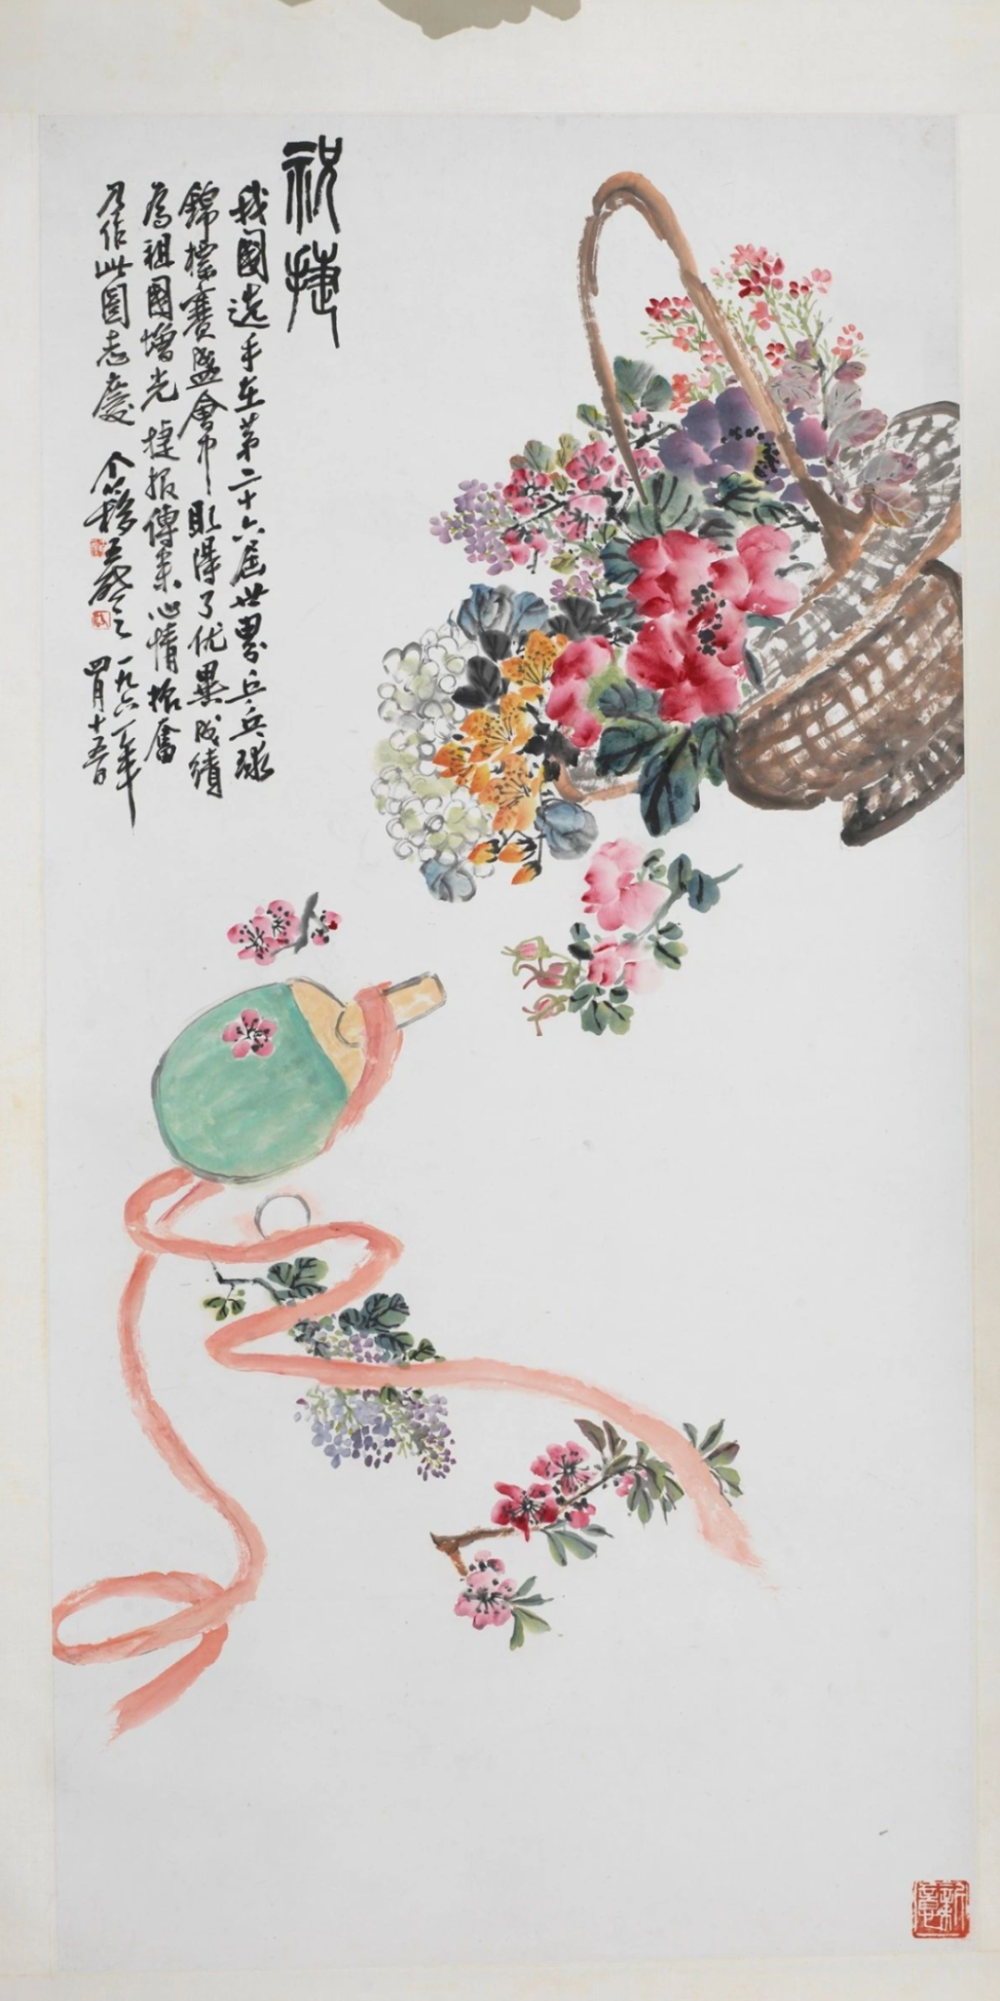 祝捷
我國选手在第二十六屆世界乒乓球
錦標賽盛會中取得了优異成績
為祖國增光 捷报傳来心情振奮
乃作此圖志慶 个簃
一九六一年
四月十五日